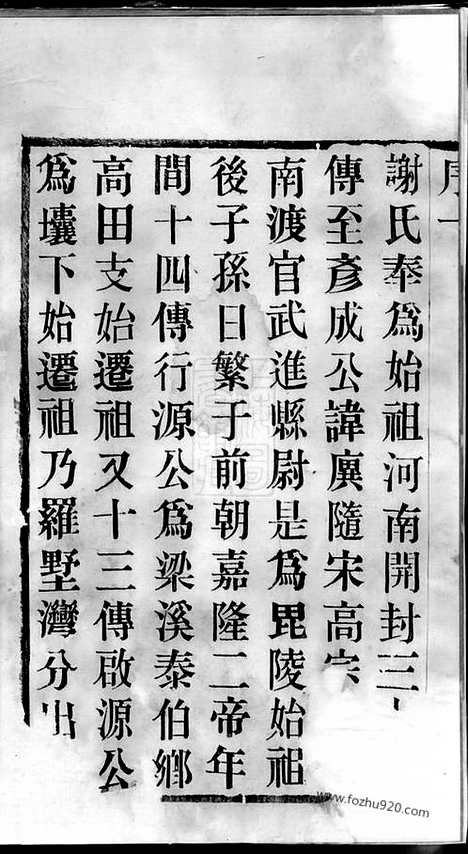 序一
謝氏奉爲始祖河南開封三
傳至彥成公諱廙隨宋高宗
南渡官武進縣尉是爲毘陵始祖
後子孫日繁于前朝嘉隆二帝年
間十四傳行源公爲梁溪泰伯鄉
高田支始遷祖又十三傳啟源公
爲壤下始遷祖乃羅墅灣分出
www.fozhu920.com